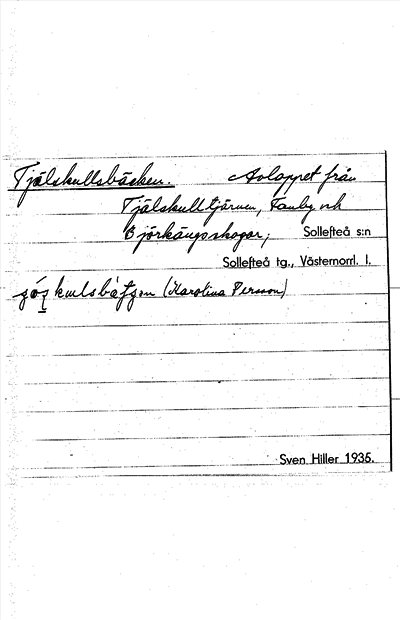 Tjälskullsbäcken. Avloppet från
Tjälskulltjärnen, Tunby och
Björkängsskogar; Sollefteå s:n
Sollefteå tg., Västernorrl. l.
(Karolina Persson)
Sven Hiller 1935.